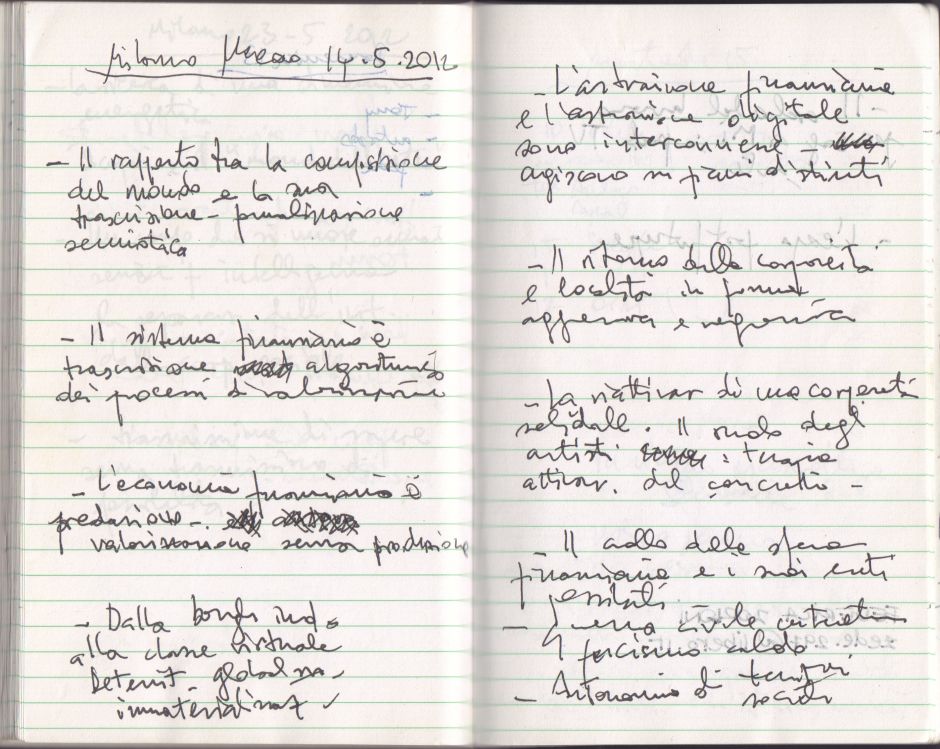 Milano Macao 14.5.2012
- Il rapporto tra la computazione
del mondo e la sua
trascrizione -
semiotica
- Il sistema finanziario è
trascrizione algoritmica
dei processi di valorizzazione
- L'economia finanziaria è
predazione -
valorizzazione senza produzione
- Dalla borgh. ind.
alla classe virtuale
Deterrit. globalizza -
immaterializzaz
- L'astrazione finanziaria
e l'astrazione digitale
sono interconnesse -
agiscono su piani distinti
- Il ritorno della corporeità
e località in forma
aggressiva e
- La riattivaz di una corporeità
solidale. Il ruolo degli
artisti : terapia
attivaz. del concreto -
- Il crollo della sfera
finanziaria e i suoi esiti
possibili
- Guerra civile
fascismo
- Autonomia di territori
sociali